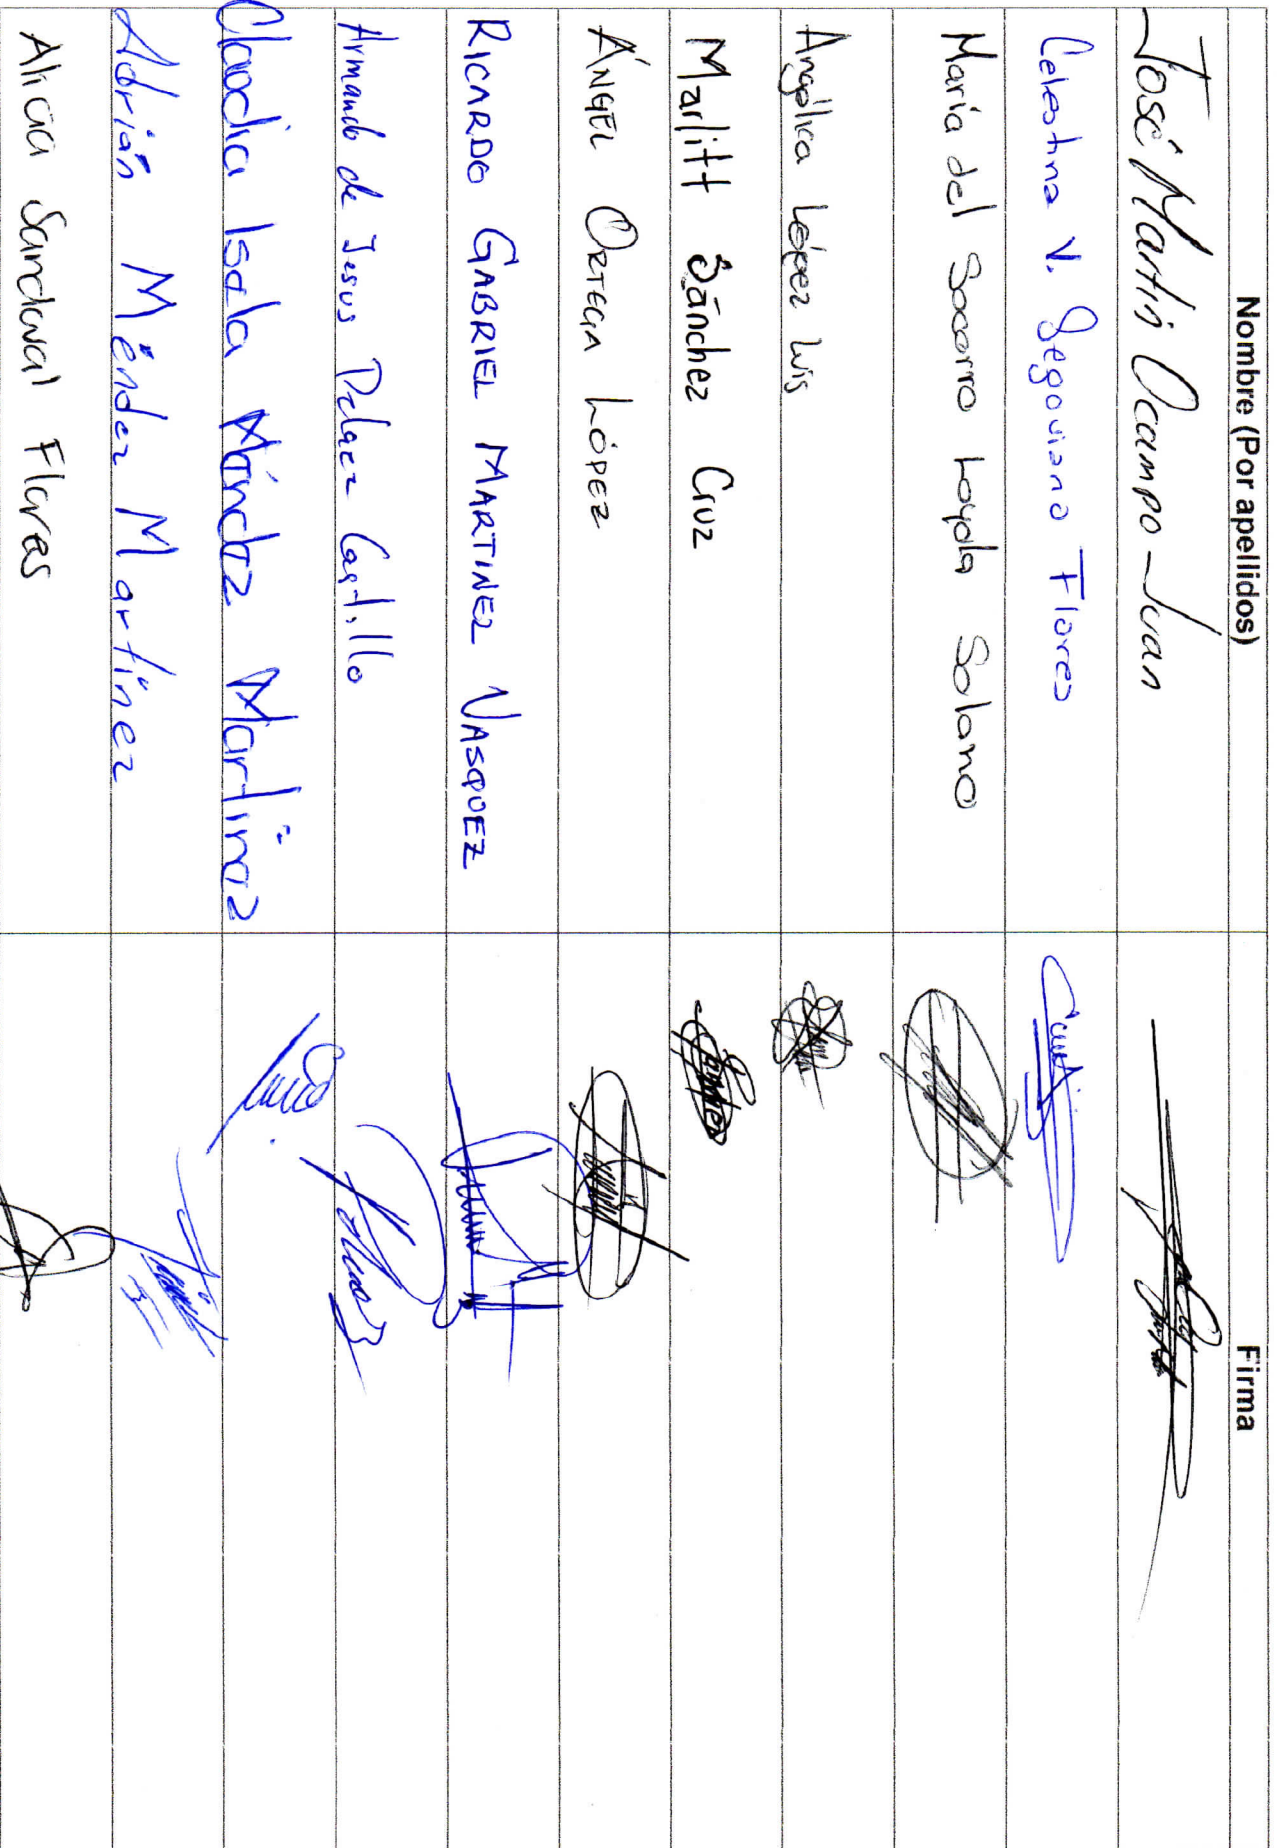 Nombre (Por apellidos) Firma
José Martín Ocampo Juan
Celestina V. Segoviano Flores
María del Socorro Loyola Solano
Angélica López Luis
Marlitt Sánchez Cruz
ÁNGEL ORTEGA LÓPEZ
RICARDO GABRIEL MARTINEZ VASQUEZ
Armando de Jesus Pelaez Castillo
Claudia Isela Méndez Martínez
Adrián Méndez Martínez
Alicia Sandoval Flores